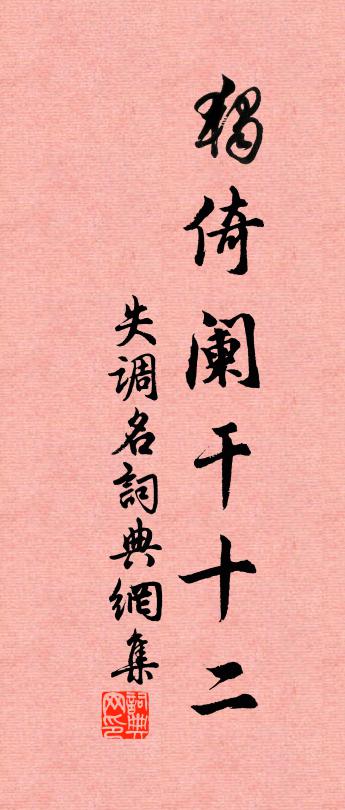 獨倚阑干十二
失調名詞典網集
詞典網印